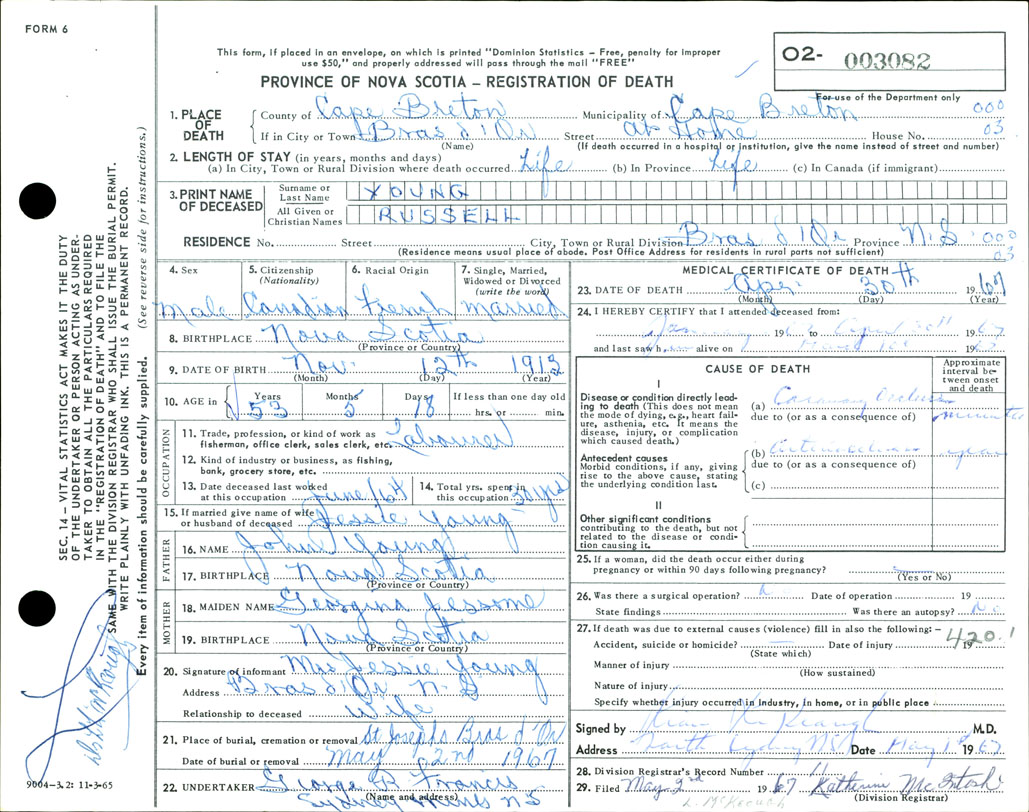 FORM 6
This form, if placed in an envelope, on which is printed "Dominion Statistics – Free, penalty for improper
use $50," and properly addressed will pass through the mail "FREE"
PROVINCE OF NOVA SCOTIA – REGISTRATION OF DEATH
O2- 003082
For use of the Department only
1. PLACE OF DEATH
County of Cape Breton Municipality of Cape Breton 000
If in City or Town Bras d'Or Street at Home House No. 03
(Name) (If death occurred in a hospital or institution, give the name instead of street and number)
2. LENGTH OF STAY (in years, months and days)
(a) In City, Town or Rural Division where death occurred Life (b) In Province Life (c) In Canada (if immigrant)
3. PRINT NAME OF DECEASED
Surname or Last Name YOUNG
All Given or Christian Names RUSSELL
RESIDENCE No. Street City, Town or Rural Division Bras d'Or Province N.S. 000
(Residence means usual place of abode. Post Office Address for residents in rural parts not sufficient) 03
4. Sex
Male
5. Citizenship
(Nationality)
Canadian
6. Racial Origin
French
7. Single, Married,
Widowed or Divorced
(write the word)
married
8. BIRTHPLACE Nova Scotia
(Province or Country)
9. DATE OF BIRTH Nov. 12th 1913
(Month) (Day) (Year)
10. AGE in
Years 53 Months 5 Days 18
If less than one day old
hrs. or min.
OCCUPATION
11. Trade, profession, or kind of work as
fisherman, office clerk, sales clerk, etc. Labourer
12. Kind of industry or business, as fishing,
bank, grocery store, etc.
13. Date deceased last worked
at this occupation June/64
14. Total yrs. spent in
this occupation 30 yrs
15. If married give name of wife
or husband of deceased Jessie Young
FATHER
16. NAME John Young
17. BIRTHPLACE Nova Scotia
(Province or Country)
MOTHER
18. MAIDEN NAME Georgina Jessome
19. BIRTHPLACE Nova Scotia
(Province or Country)
20. Signature of informant Mrs Jessie Young
Address Bras d'Or N.S
Relationship to deceased Wife
21. Place of burial, cremation or removal St Josephs Bras d'Or
Date of burial or removal May 2nd 1967
22. UNDERTAKER George D Francis
(Name and address)
Sydney Mines NS
MEDICAL CERTIFICATE OF DEATH
23. DATE OF DEATH Apr. 30th 1967
(Month) (Day) (Year)
24. I HEREBY CERTIFY that I attended deceased from:
19 to April 30th 1967
and last saw h alive on 19
CAUSE OF DEATH
Approximate
interval be-
tween onset
and death
I
Disease or condition directly lead-
ing to death (This does not mean
the mode of dying, e.g., heart fail-
ure, asthenia, etc. It means the
disease, injury, or complication
which caused death.)
(a) Coronary Occlusion
due to (or as a consequence of) minutes
Antecedent causes
Morbid conditions, if any, giving
rise to the above cause, stating
the underlying condition last.
(b)
due to (or as a consequence of)
(c)
II
Other significant conditions
contributing to the death, but not
related to the disease or condi-
tion causing it.
25. If a woman, did the death occur either during
pregnancy or within 90 days following pregnancy?
(Yes or No)
26. Was there a surgical operation? No Date of operation 19
State findings Was there an autopsy? No
27. If death was due to external causes (violence) fill in also the following: – 420.1
Accident, suicide or homicide? Date of injury 19
(State which)
Manner of injury
(How sustained)
Nature of injury
Specify whether injury occurred in industry, in home, or in public place
Signed by M.D.
Address North Sydney NS Date May 1st 1967
28. Division Registrar's Record Number 11
29. Filed May 2nd 1967 Katherine McIntosh
(Division Registrar)
SEC. 14 – VITAL STATISTICS ACT MAKES IT THE DUTY
OF THE UNDERTAKER OR PERSON ACTING AS UNDER-
TAKER TO OBTAIN ALL THE PARTICULARS REQUIRED
IN THE "REGISTRATION OF DEATH" AND TO FILE THE
SAME WITH THE DIVISION REGISTRAR WHO SHALL ISSUE THE BURIAL PERMIT.
WRITE PLAINLY WITH UNFADING INK. THIS IS A PERMANENT RECORD.
Every item of information should be carefully supplied. (See reverse side for instructions.)
9004-3.2: 11-3-65